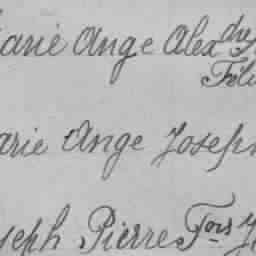 Marie Ange Alexdre
Marie Ange Joseph
Joseph Pierre Fois